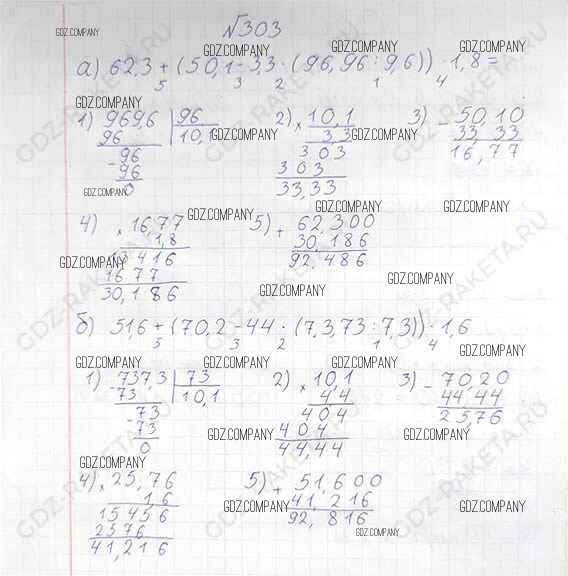 №303
GDZ.COMPANY
GDZ.COMPANY GDZ.COMPANY
а) 62,3 + (50,1 - 3,3 · (96,96 : 9,6)) · 1,8 =
5 3 2 1 4
GDZ.COMPANY
1) 969,6 | 96 2) × 10,1 3) - 50,10
96 10,1 GDZ.COMPANY 3,3 GDZ.COMPANY 33,33
- 96 303 16,77
96 303
0 33,33
GDZ.COMPANY
GDZ.COMPANY GDZ.COMPANY
4) × 16,77 5) + 62,300
1,8 30,186
GDZ.COMPANY 13416 92,486
1677 GDZ.COMPANY
30,186 GDZ.COMPANY
б) 51,6 + (70,2 - 44 · (7,3,73 : 7,3)) · 1,6
5 3 2 1 4
GDZ.COMPANY GDZ.COMPANY GDZ.COMPANY
1) - 737,3 | 73 2) × 10,1 3) - 70,20
73 10,1 4,4 44,44
- 73 404 25,76
73 404
0 44,44
GDZ.COMPANY GDZ.COMPANY
GDZ.COMPANY
4) × 25,76 5) + 51,600
1,6 41,216
15456 92,816
2576
41,216
GDZ.COMPANY GDZ.COMPANY
GDZ.COMPANY
GDZ-RAKETA.RU